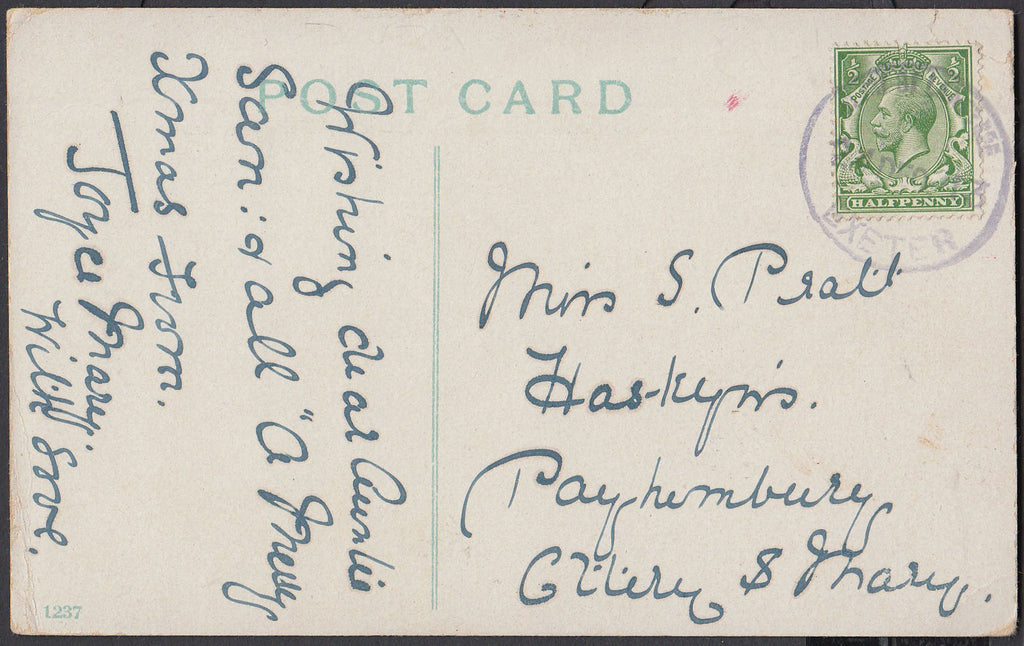 POST CARD
Wishing dear Auntie
Sarn: & all "A Merry
Xmas from.
Joyce Mary.
With love.
1237
½ ½
POSTAGE REVENUE
HALFPENNY
EXETER
Miss S. Pratt
Haskyns.
Payhembury
Ottery S Mary.